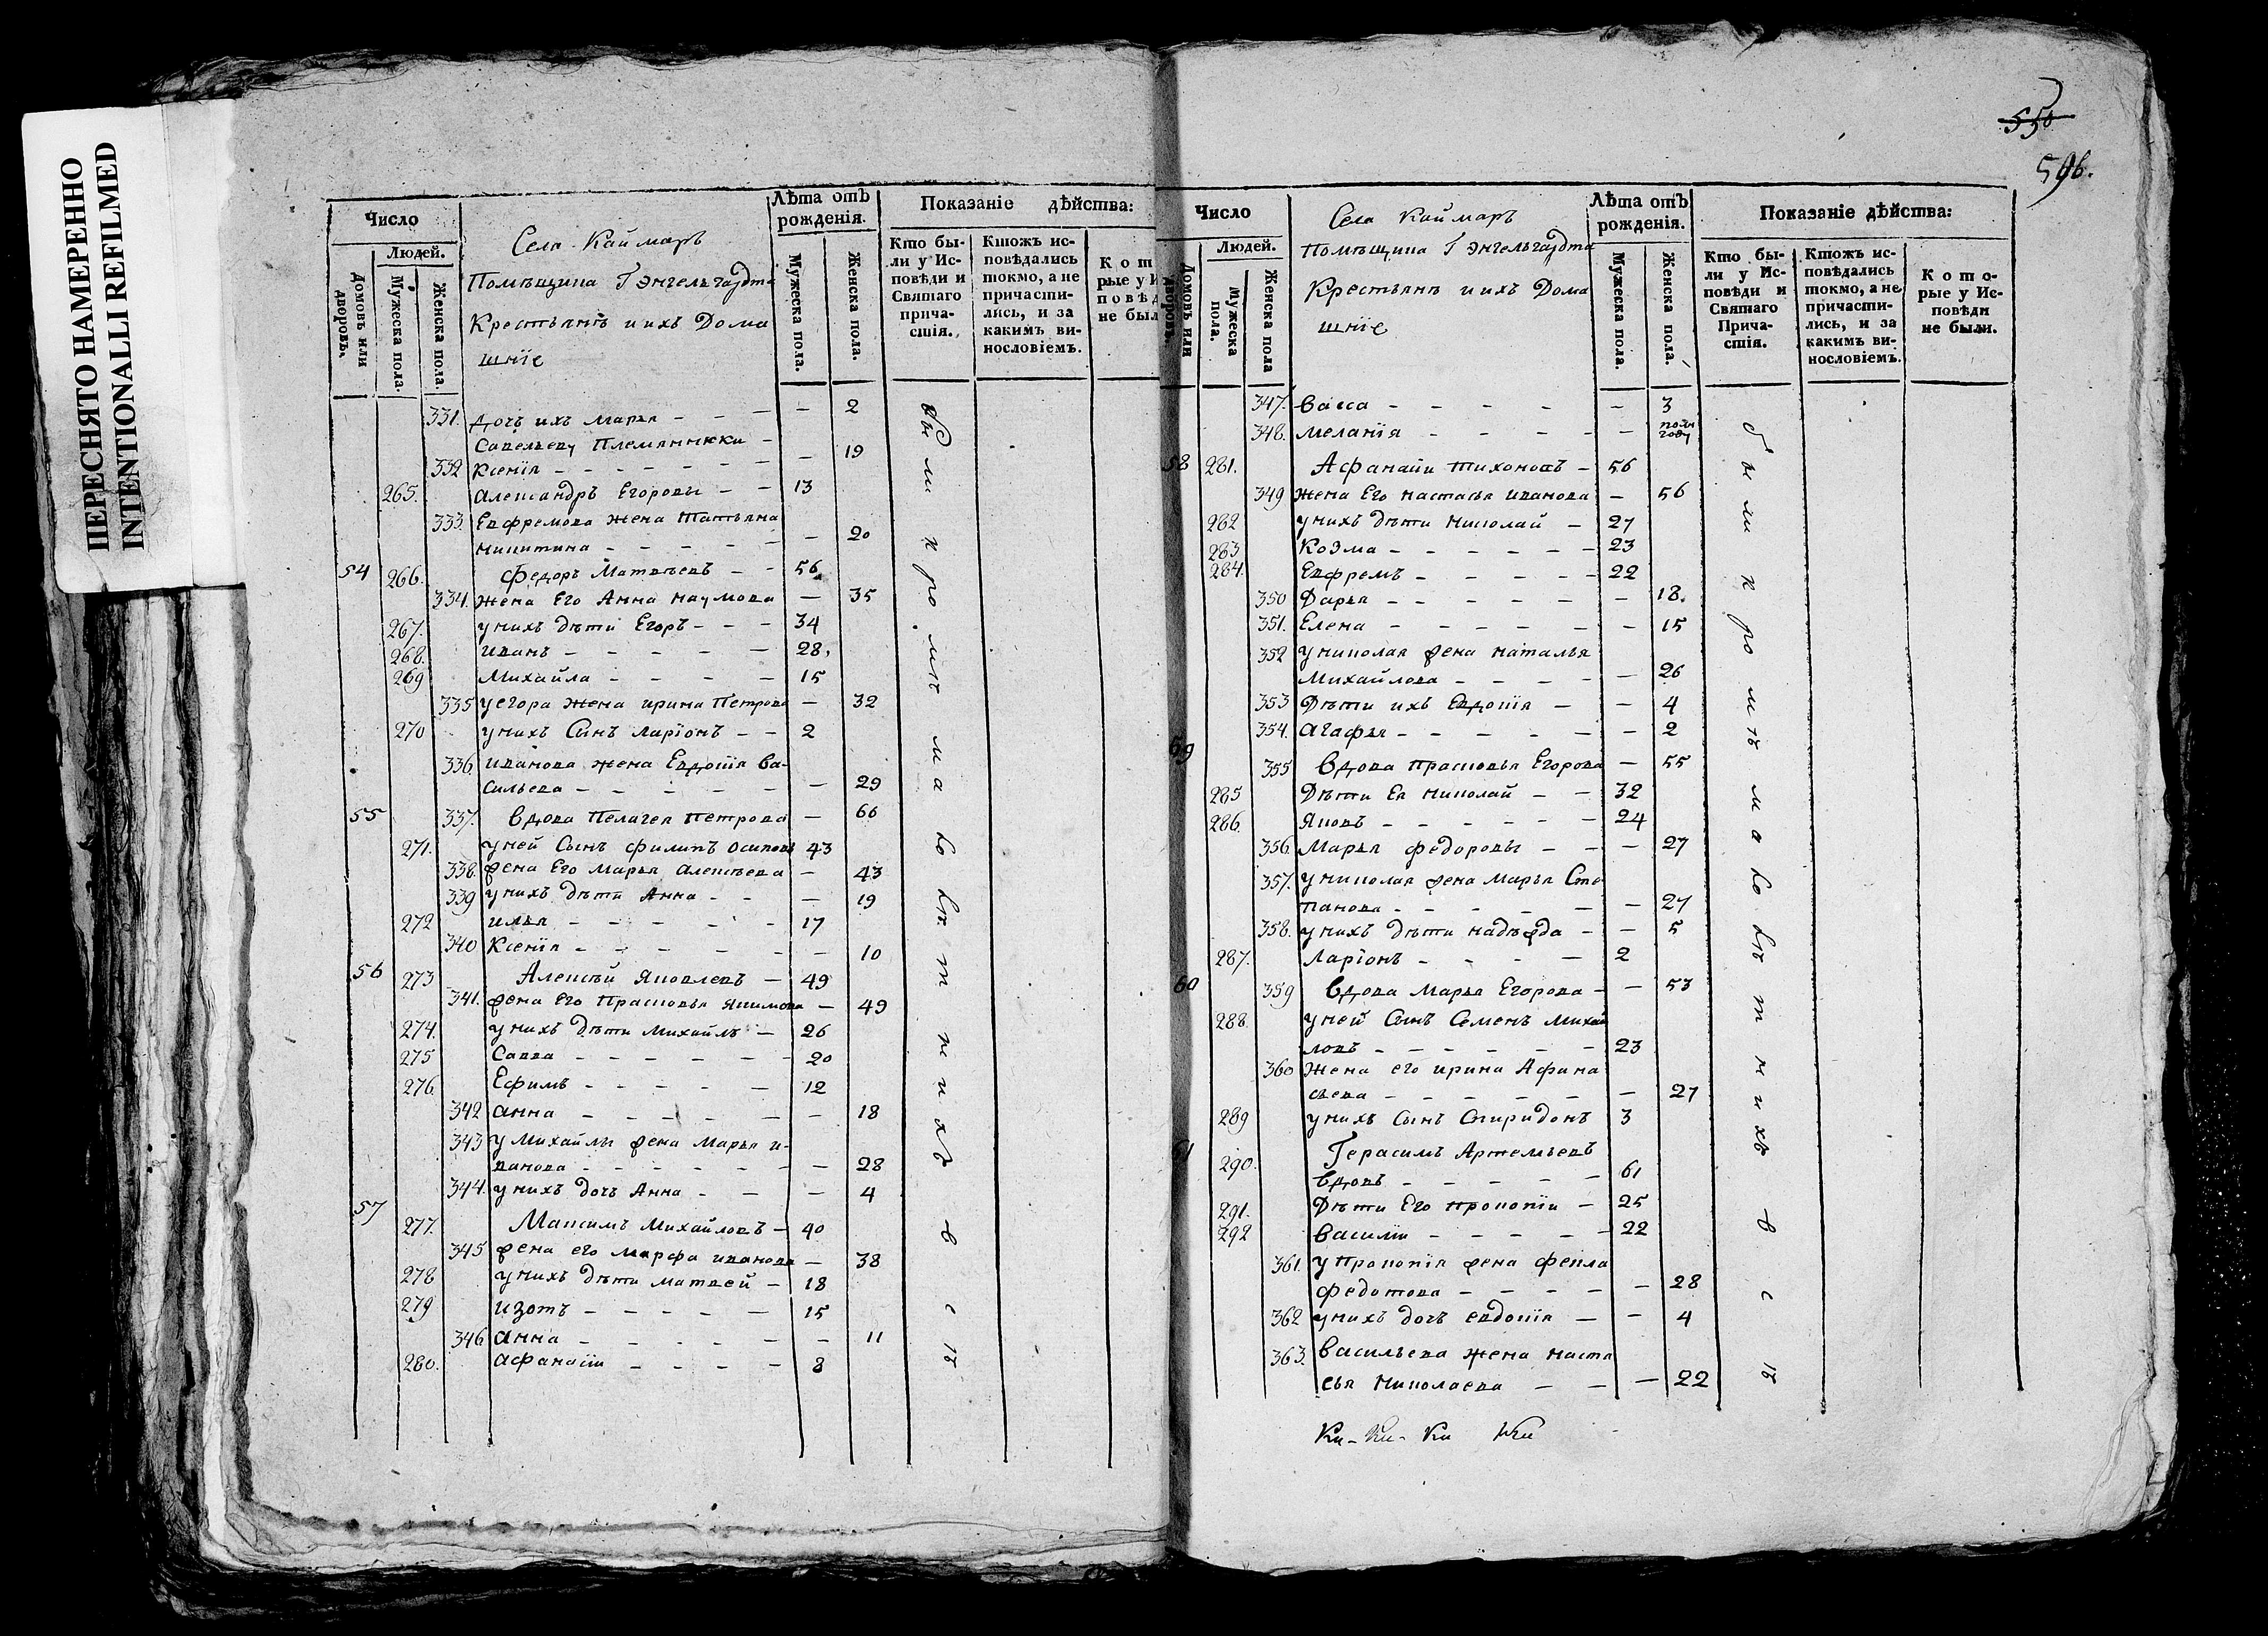 ПЕРЕСНЯТО НАМЕРЕННО
INTENTIONALLI REFILMED
550
596.
Число
Людей.
Домовъ или дворовъ.
Мужеска пола.
Женска пола.
Села Каймаръ
Помѣщика Г Энгельгардта
Крестьянѣ и ихъ Дома
шнїе
Лѣта отъ рожденія.
Мужеска пола.
Женска пола.
Показаніе дѣйства:
Кто бы-
ли у Ис-
повѣди и
Святаго
прича-
стія.
Ктожъ ис-
повѣдались
токмо, а не
причасти-
лись, и за
какимъ ви-
нословіемъ.
К о т
рые у И
п о в ѣ д
не был
331. дочь ихъ Марья - - - - 2
Савельеву Племянники -
332 Ксенїя - - - - - - - 19
265. Александръ Егоровы - - 13
333 Евфремова жена Татьяна
никитина - - - - - - 20
54 266. Федоръ Матвѣевъ - - 56
334. жена Его Анна наумова - 35
267. у нихъ дѣти Егоръ - - - 34
268. иванъ - - - - - 28.
269 Михайла - - - - 15
335 у егора жена ирина Петрова - 32
270 у нихъ Сынъ ларїонъ - - 2
336. иванова жена Евдокїя ва-
сильева - - - - - - 29
55 337. вдова Пелагея Петрова - 66
271. у ней Сынъ филипъ осиповъ 43
338. жена Его Марья алексѣева - 43
339 у нихъ дѣти Анна - - - 19
272 илья - - - - - 17
340 Ксенїя - - - - - - 10
56 273 Алексѣй Яковлевъ - 49
341. жена Его Прасковья якимова - 49
274. у нихъ дѣти Михайлъ - 26
275 Савва - - - - - - 20
276. Ефимъ - - - - - 12
342 анна - - - - - - 18
343 у Михайлы жена Марья и-
ванова - - - - - - - 28
344. у нихъ дочь Анна - - - 4
57 277. Максимъ Михайловъ - 40
345 жена его марфа иванова - 38
278 у нихъ дѣти матвей - 18
279 изотъ - - - - - 15
346 анна - - - - - - 11
280. афанасїи - - - - 8
были у исповѣди
Число
Людей.
Домовъ или дворовъ.
Мужеска пола.
Женска пола
Села Каймаръ
Помѣщика Г Энгельгардта
Крестьянѣ и ихъ Дома
шнїе
Лѣта отъ рожденія.
Мужеска пола.
Женска пола.
Показаніе дѣйства:
Кто бы-
ли у Ис-
повѣди и
Святаго
Прича-
стія.
Ктожъ ис-
повѣдались
токмо, а не
причасти-
лись, и за
какимъ ви-
нословіемъ.
К о т о-
рые у Ис-
повѣди
не были.
347. васса - - - - - 3
348. меланїя - - - - - полъ году
58 281. Афанасїи тихоновъ - 56
349 жена Его настасья иванова - 56
282 у нихъ дѣти николай - 27
283 Козма - - - - - - 23
284. Евфремъ - - - - - 22
350 Дарья - - - - - - 18.
351. Елена - - - - - - 15
352 у николая жена наталья
Михайлова - - - - - 26
353 Дѣти ихъ Евдокїя - - 4
354. агафья - - - - - - 2
59 355 вдова прасковья Егорова - 55
285 Дѣти Ея николай - - 32
286. Яковъ - - - - - - 24
356. Марья федоровы - - - 27
357. у николая жена марья Сте
панова - - - - - - 27
358. у нихъ дѣти надѣжда - - 5
287. ларїонъ - - - - 2
60 359 вдова Марья Егорова - - 53
288. у ней Сынъ Семенъ михай
ловъ - - - - - - 23
360 жена его ирина Афана
сьева - - - - - - 27
289 у нихъ Сынъ Спиридонъ 3
61 290. Герасимъ Артемьевъ
вдовъ - - - - - 61
291. Дѣти Его прокопїи - 25
292 василїи - - - - - 22
361. у Прокопїя жена фекла
федотова - - - - - 28
362 у нихъ дочь евдокїя - - 4
363. васильева жена наста
сья николаева - - - 22
были кромѣ малолѣтнихъ всѣ